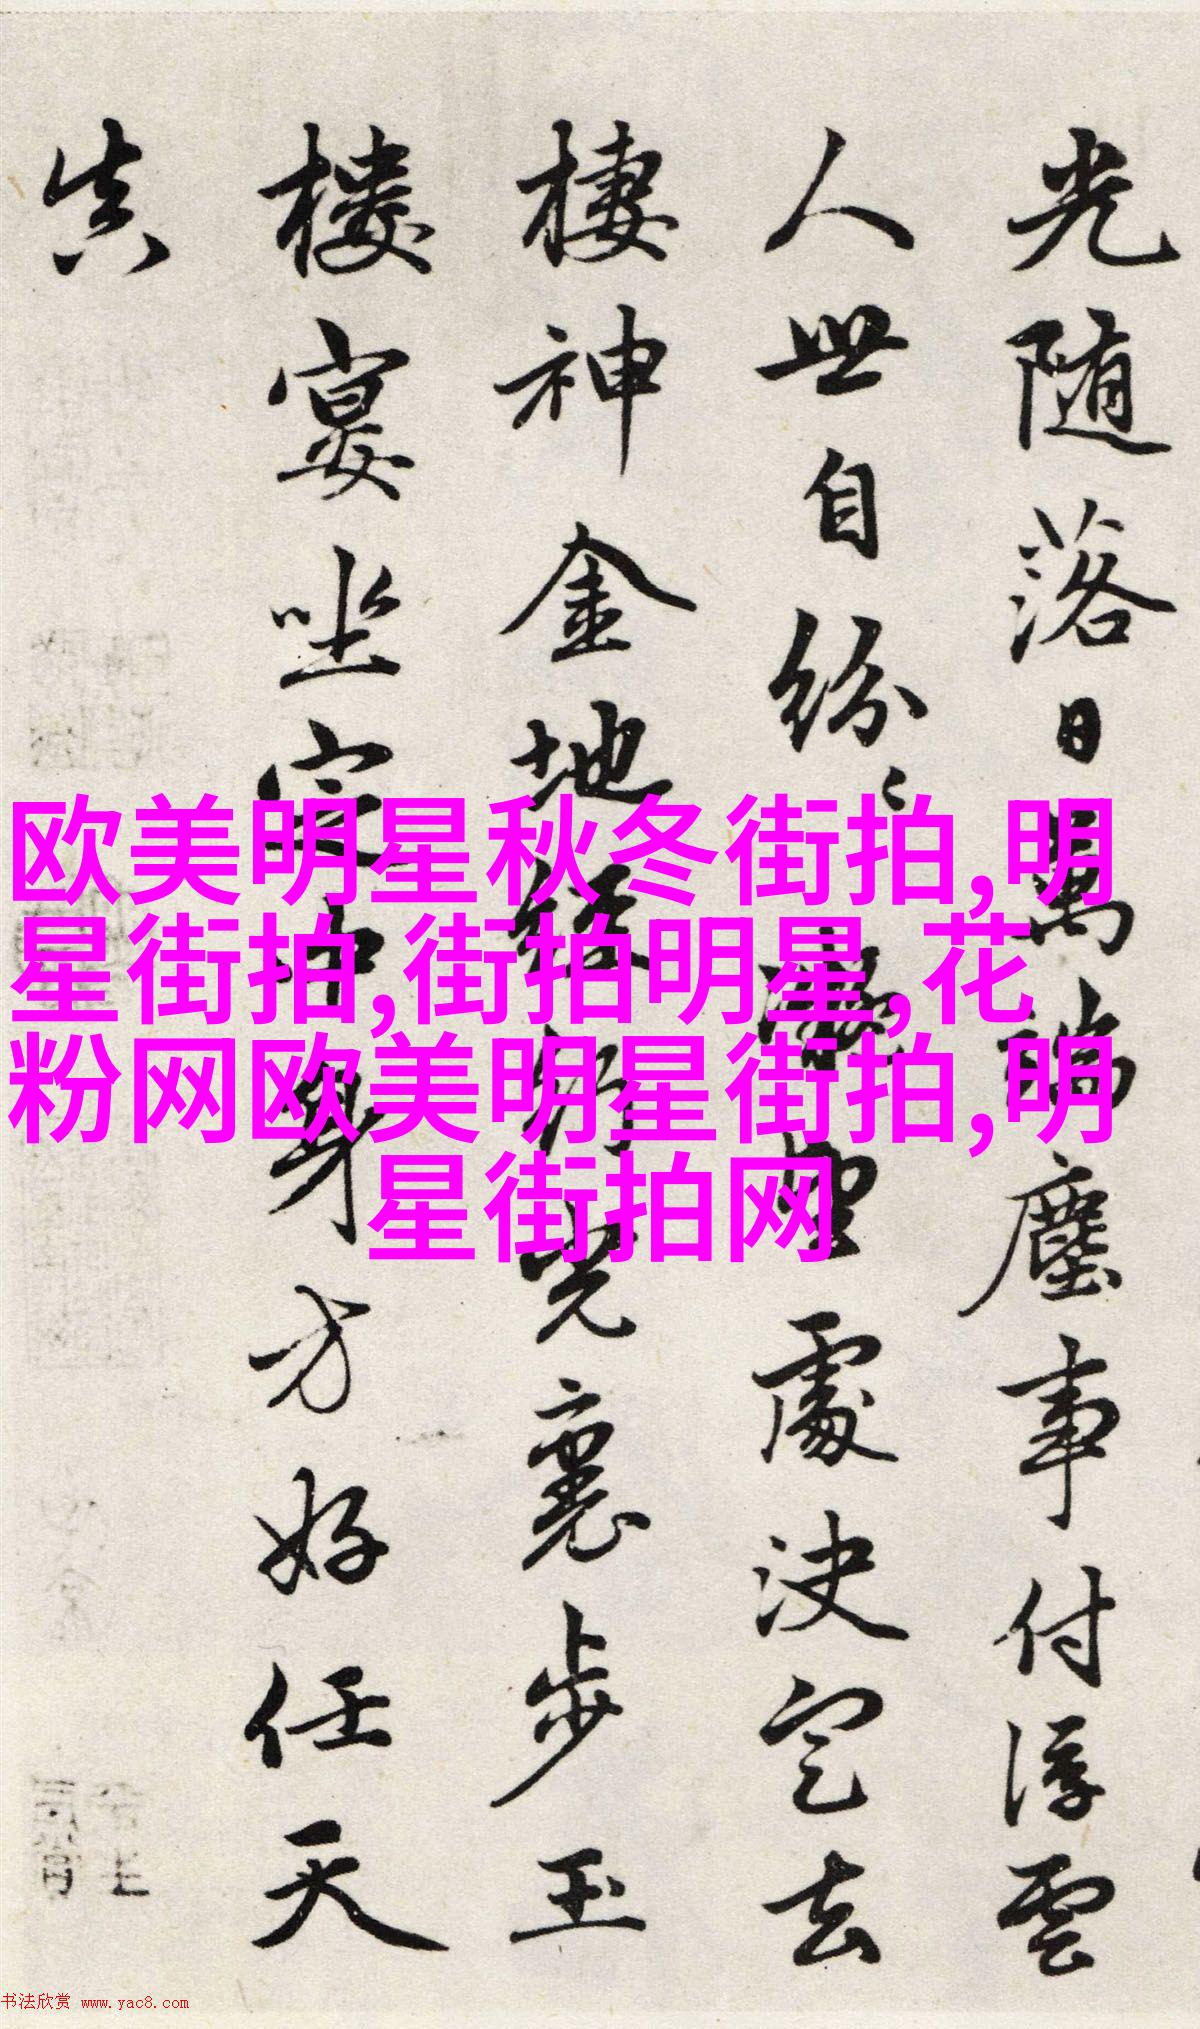 光随落日萬端塵事付浮雲
人世自紛〻處決定去
棲神金地經行光裏步玉
樓宴坐定中身方好任天
真
欧美明星秋冬街拍,明
星街拍,街拍明星,花
粉网欧美明星街拍,明
星街拍网
书法欣赏 www.yac8.com